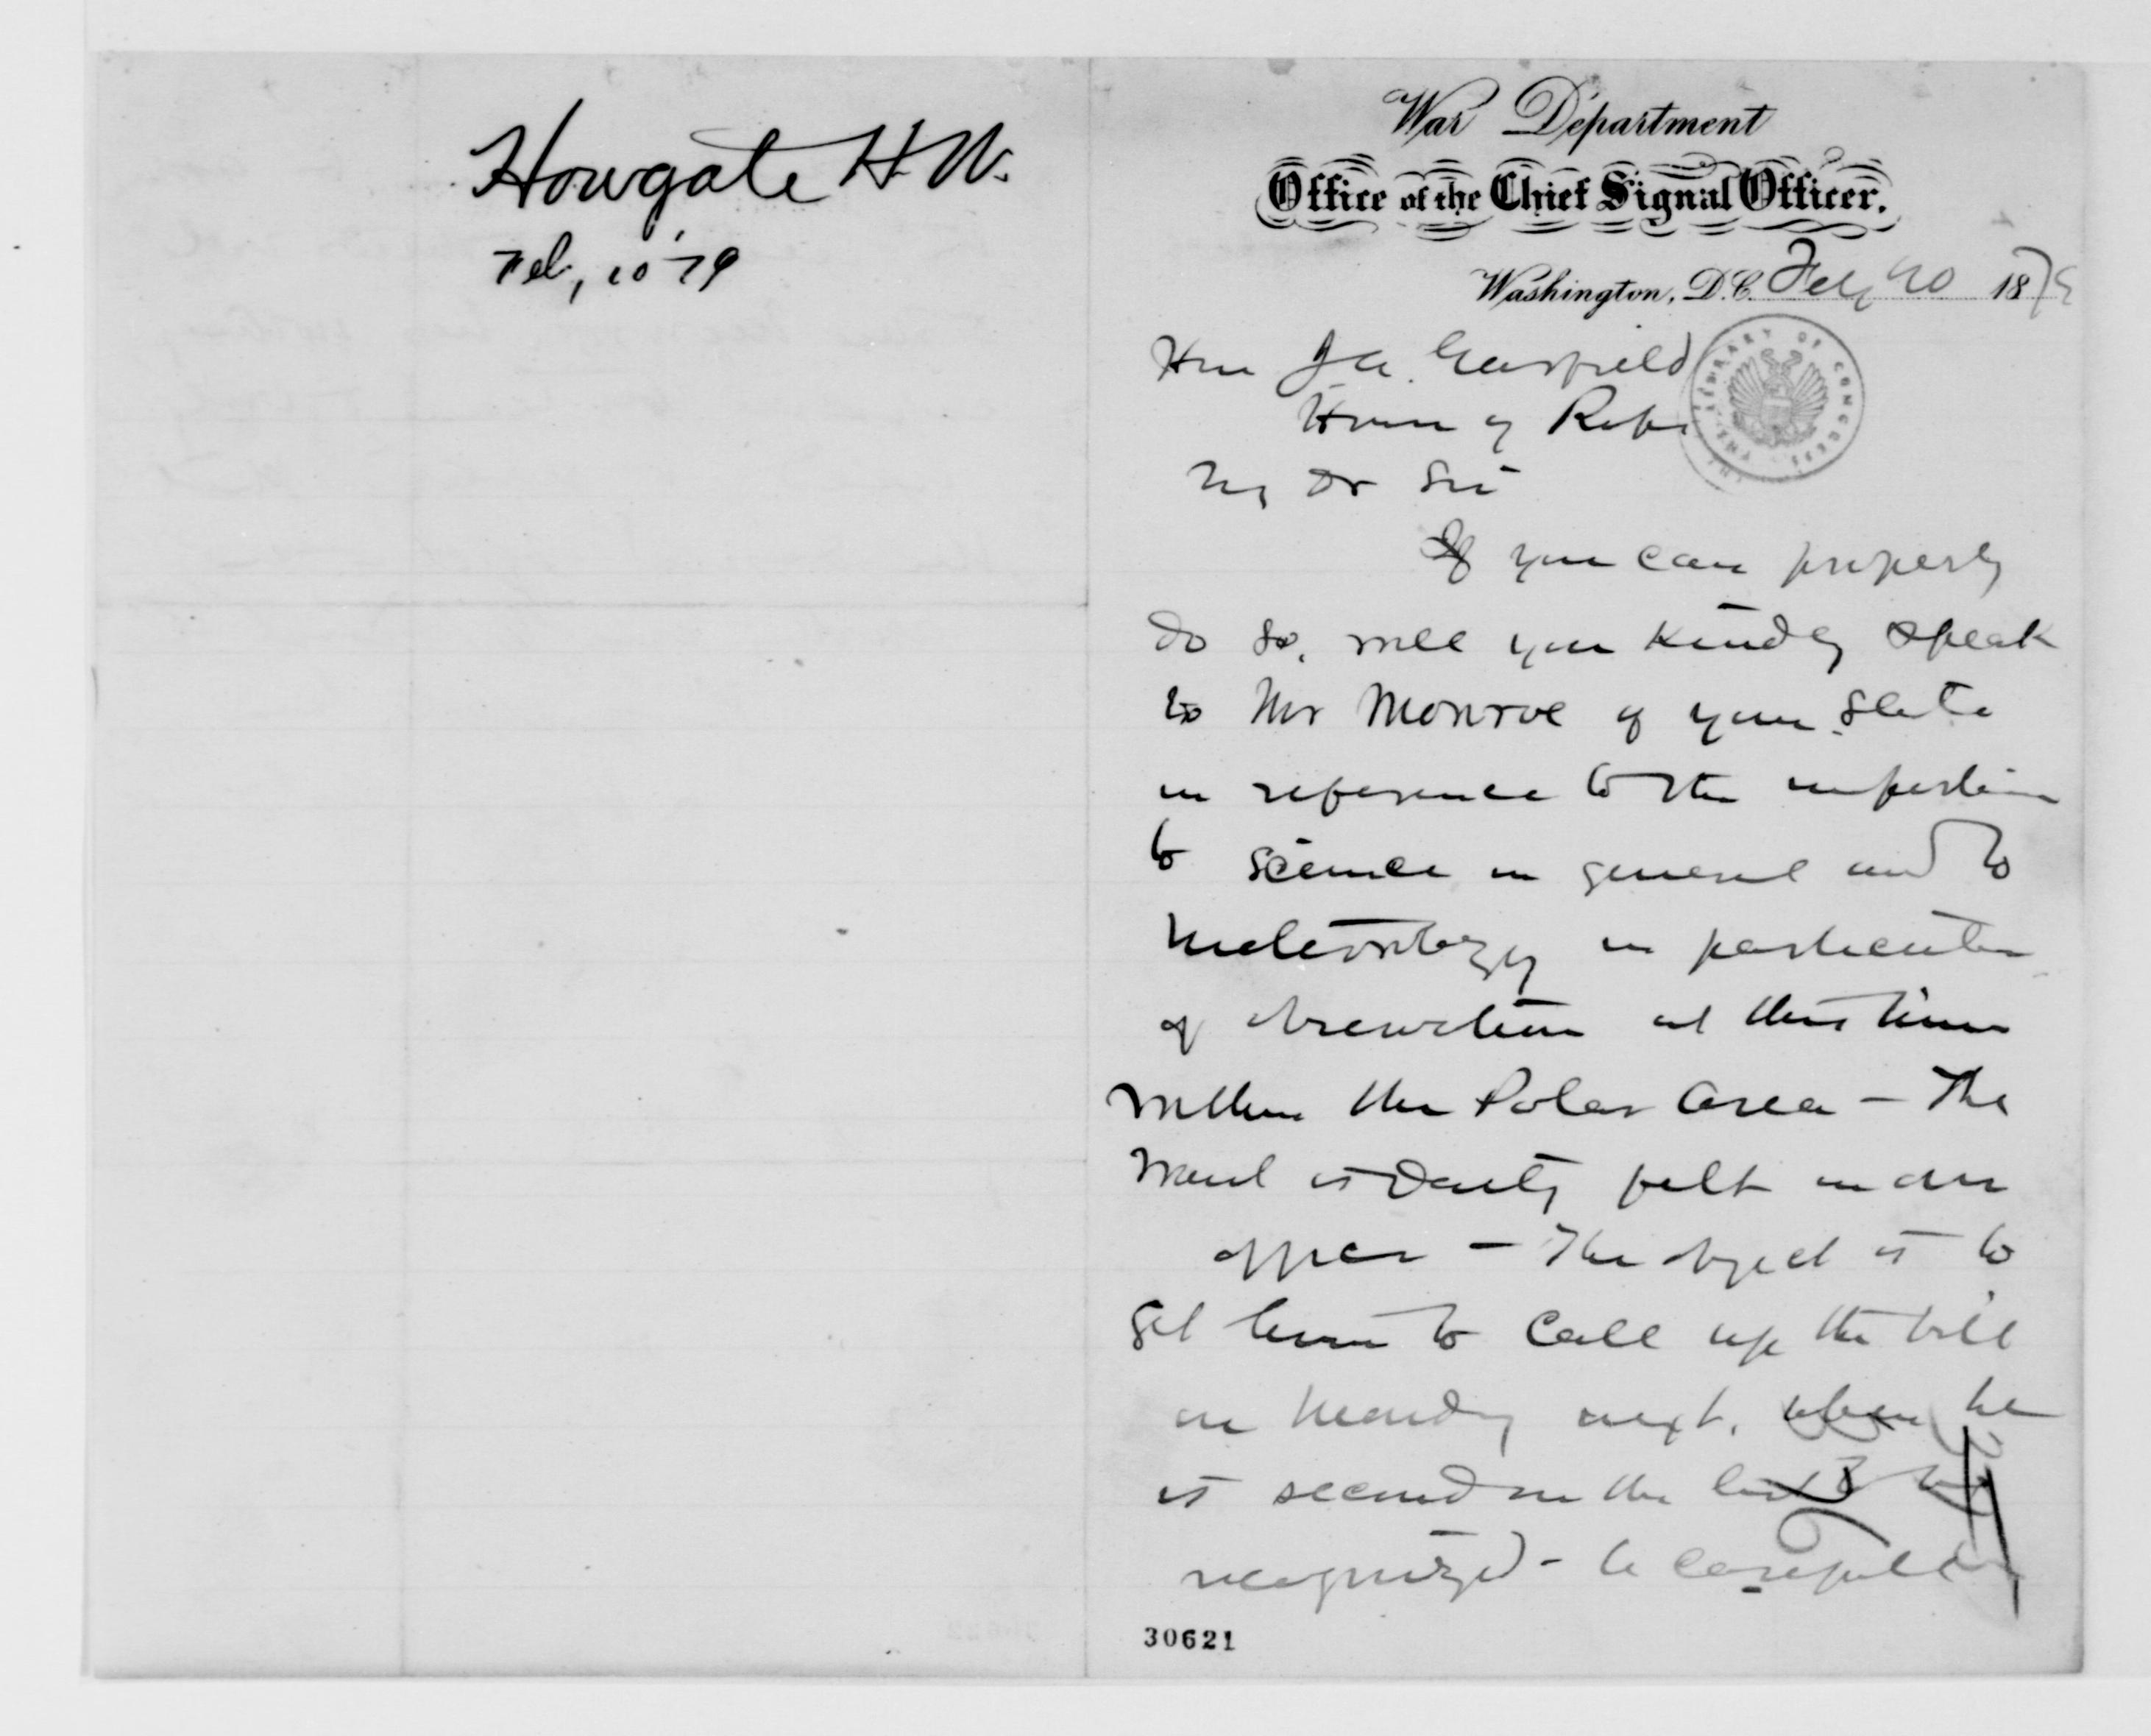 Howgate H.W.
Feb, 10 '79
War Department
Office of the Chief Signal Officer.
Washington, D.C. Feby 10 1879
Hon J A. Garfield
House of Reps
THE LIBRARY OF CONGRESS
My Dr Sir
If you can properly
do so, will you kindly speak
to Mr Monroe of your State
in reference to the importance
to science in general and to
Meteorology in particular
of observations at this time
within the Polar Area - The
want is daily felt in our
office - The object is to
get him to call up the bill
on Monday next, when he
is second on the list to be
recognized - A carefully
30621